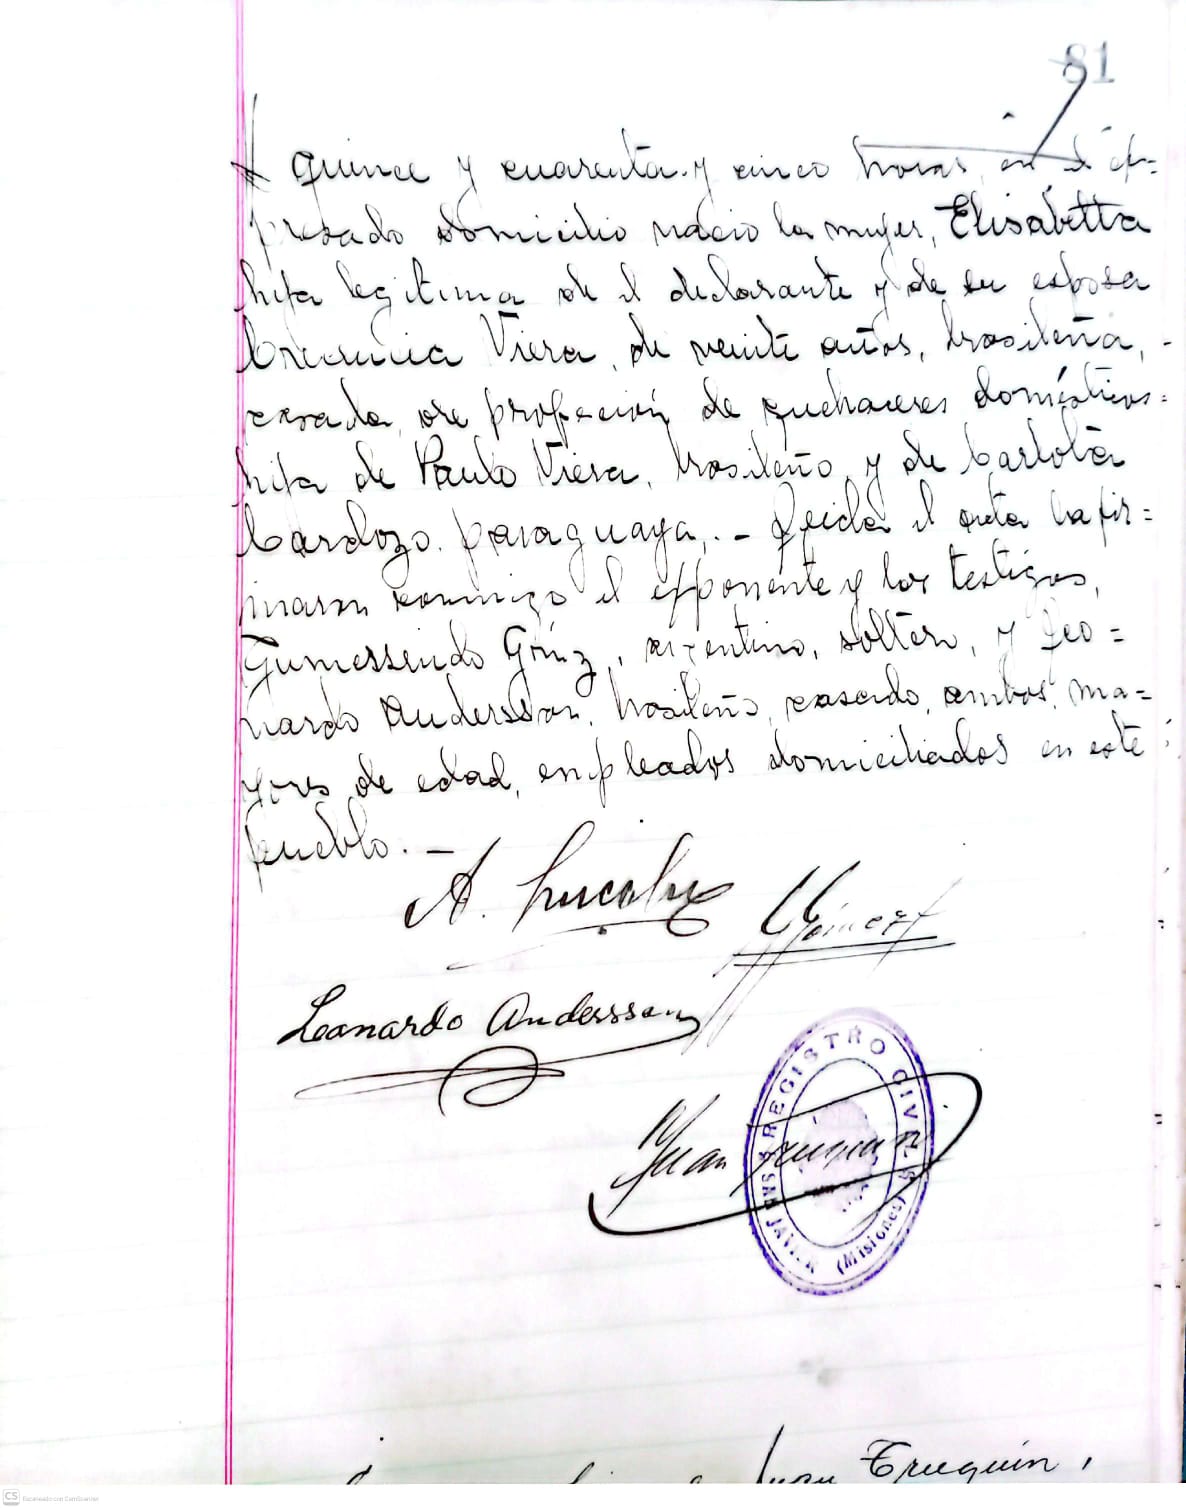 81
A quince y cuarenta y cinco horas, en el ex=
presado domicilio nació la mujer, Elisabetta
hija legitima de el declarante y de su esposa
Viera, de veinte años, brasileña, -
casada, de profeción de quehaceres domésticos=
hija de Paulo Viera, brasileño, y de Carlota
Cardozo, paraguaya, . - leida el acta la fir=
maron conmigo el exponente y los testigos,
Gumersindo , argentino, soltero, y Leo=
nardo Anderssen, brasileño, casado, ambos ma=
yores de edad, empleados domiciliados en este
pueblo. -
A.
Leonardo Anderssen
Juan
REGISTRO CIVIL
JAVIER (Misiones)
Juan Truquin,
CS Escaneado con CamScanner